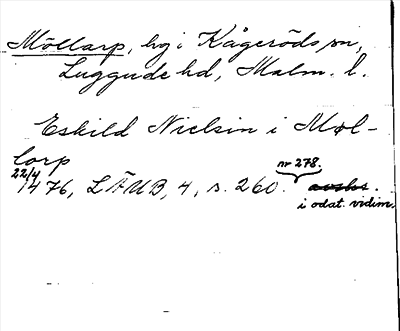 Möllarp, hg i Kågeröds sn,
Luggude hd, Malm. l.
Eskild Nielsin i Møl-
lorp
22/4 1476, LÄUB, 4, s. 260. nr 278.
i odat. vidim.